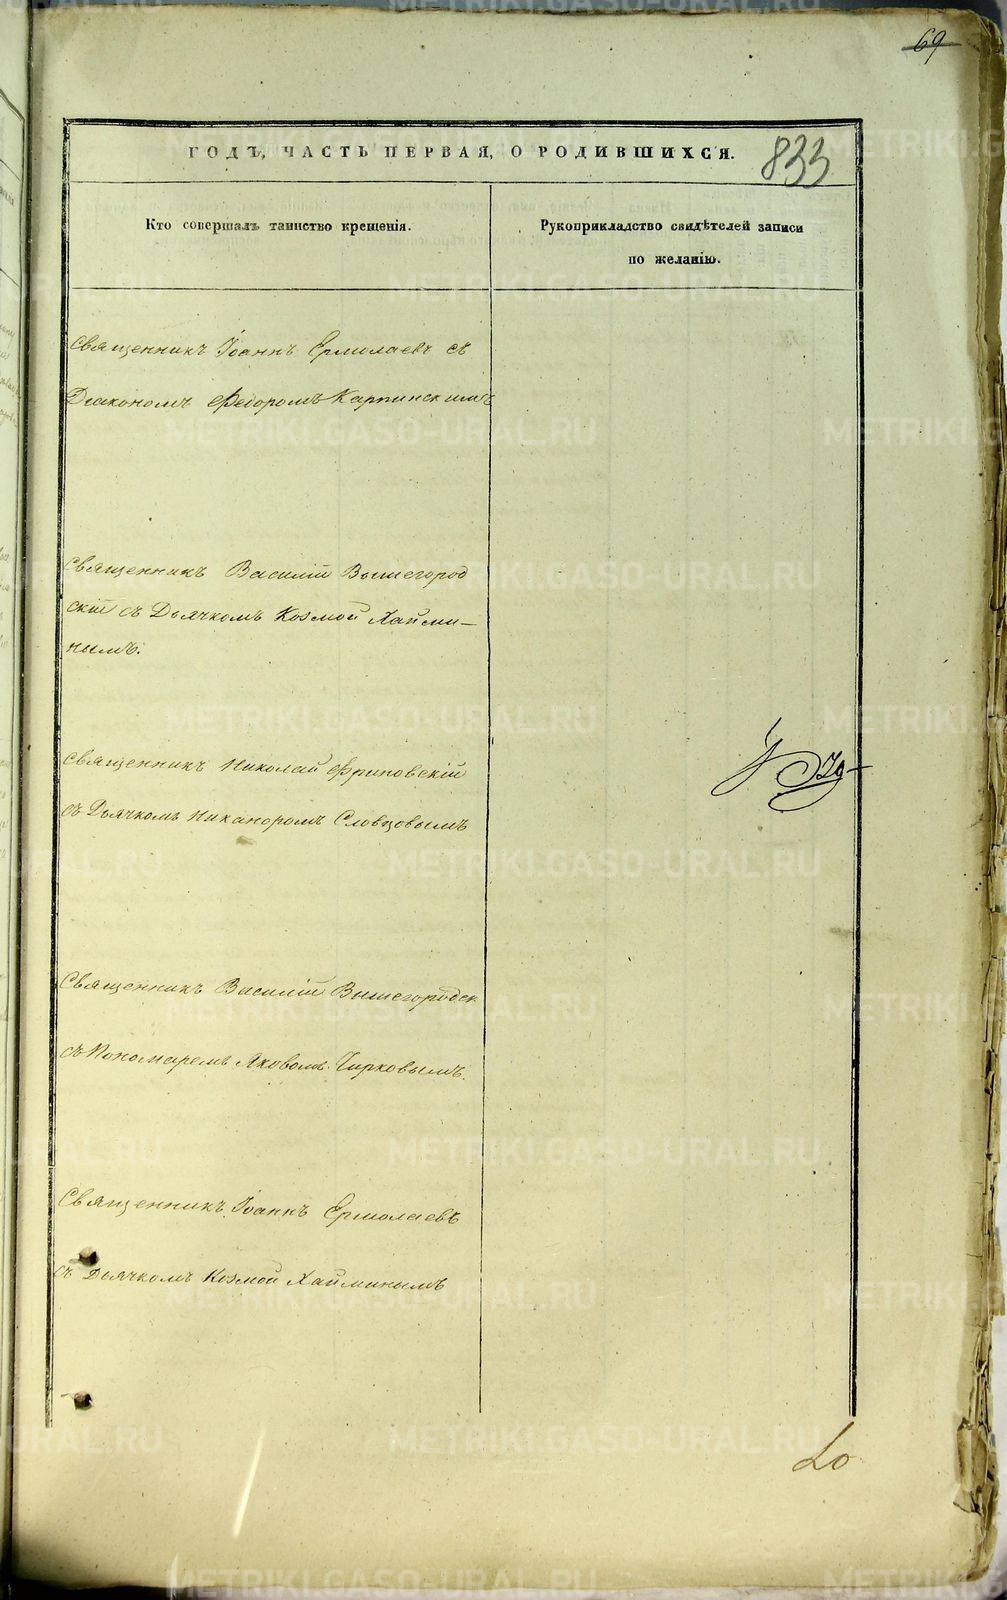 69
ГОДЪ, ЧАСТЬ ПЕРВАЯ, О РОДИВШИХСЯ.
833
Кто совершалъ таинство крещенія.
Рукоприкладство свидѣтелей записи
по желанію.
Священникъ Іоаннъ Ермолаевъ съ
Діакономъ Ѳедоромъ Карпинскимъ
Священникъ Василій Вышегород
скій съ Дьячкомъ Козмой Хайми-
нымъ.
Священникъ Николай Фриновскій
съ Дьячкомъ Никаноромъ Словцовымъ
Священникъ Василій Вышегородск
съ Пономаремъ Яковомъ Чирковымъ.
Священникъ Іоаннъ Ермолаевъ
съ Дьячкомъ Козмой Хайминымъ
METRIKI.GASO-URAL.RU